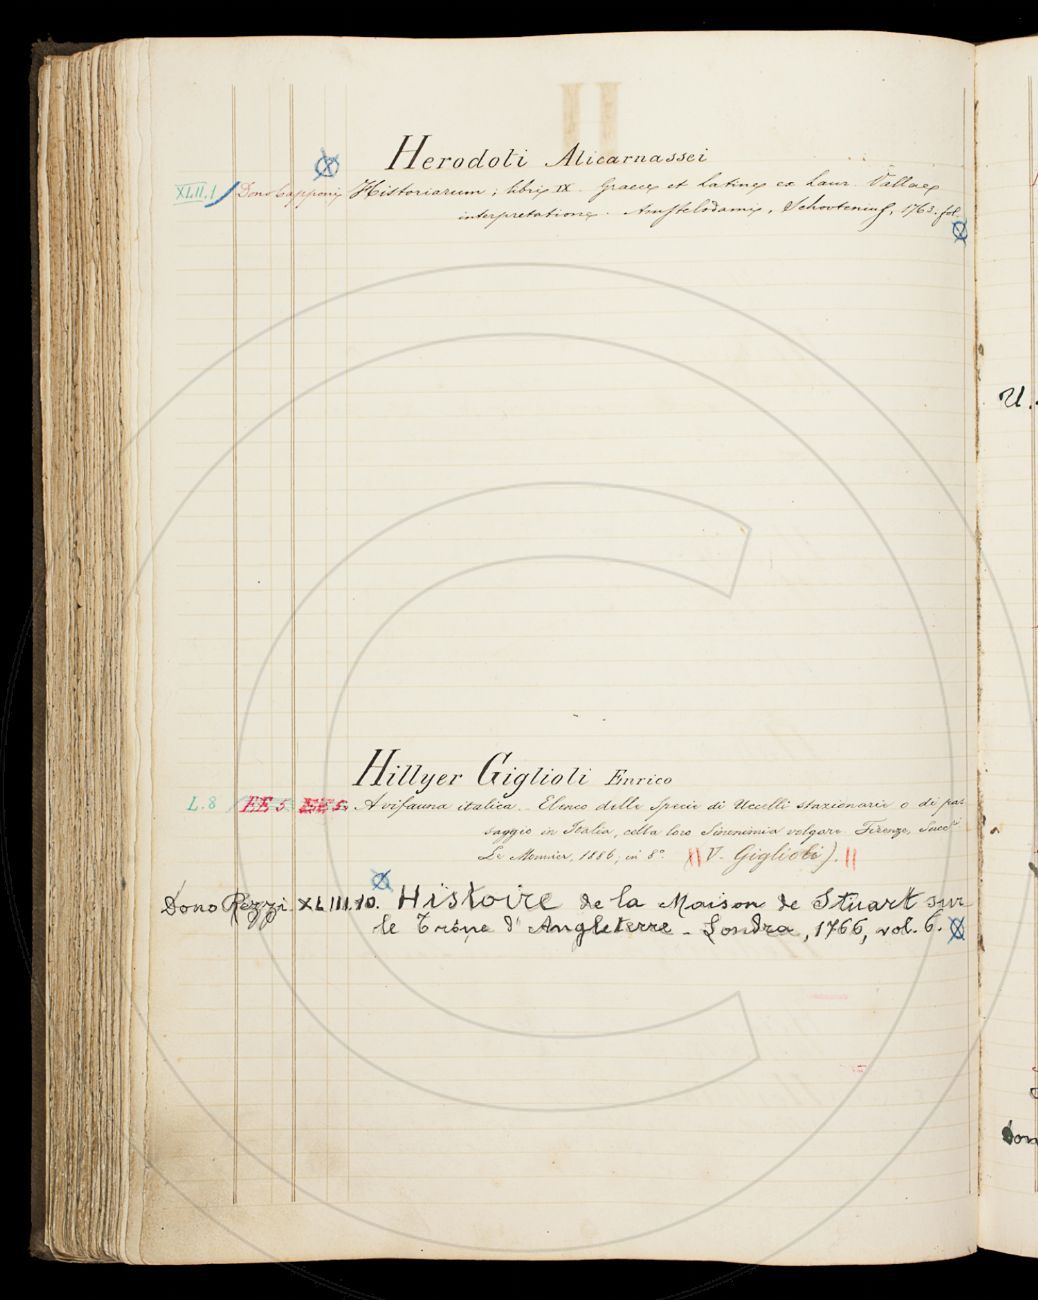 Herodoti Alicarnassei
XLII.1 Dono Capponi Historiarum; libri IX. Graece et Latine ex Laur. Vallae
interpretatione. Amstelodami, Schoutenius, 1763. fol.
Hillyer Giglioli Enrico
L.8 EE 5 EE 5 Avifauna italica. Elenco delle Specie di Uccelli stazionarie o di pas-
saggio in Italia, colla loro Sinonimia volgare. Firenze, Succ.ri
Le Monnier, 1886, in 8.° (V. Giglioli).
Dono Pezzi XLIII.10. Histoire de la Maison de Stuart sur
le Trône d'Angleterre - Londra, 1766, vol. 6.
U.